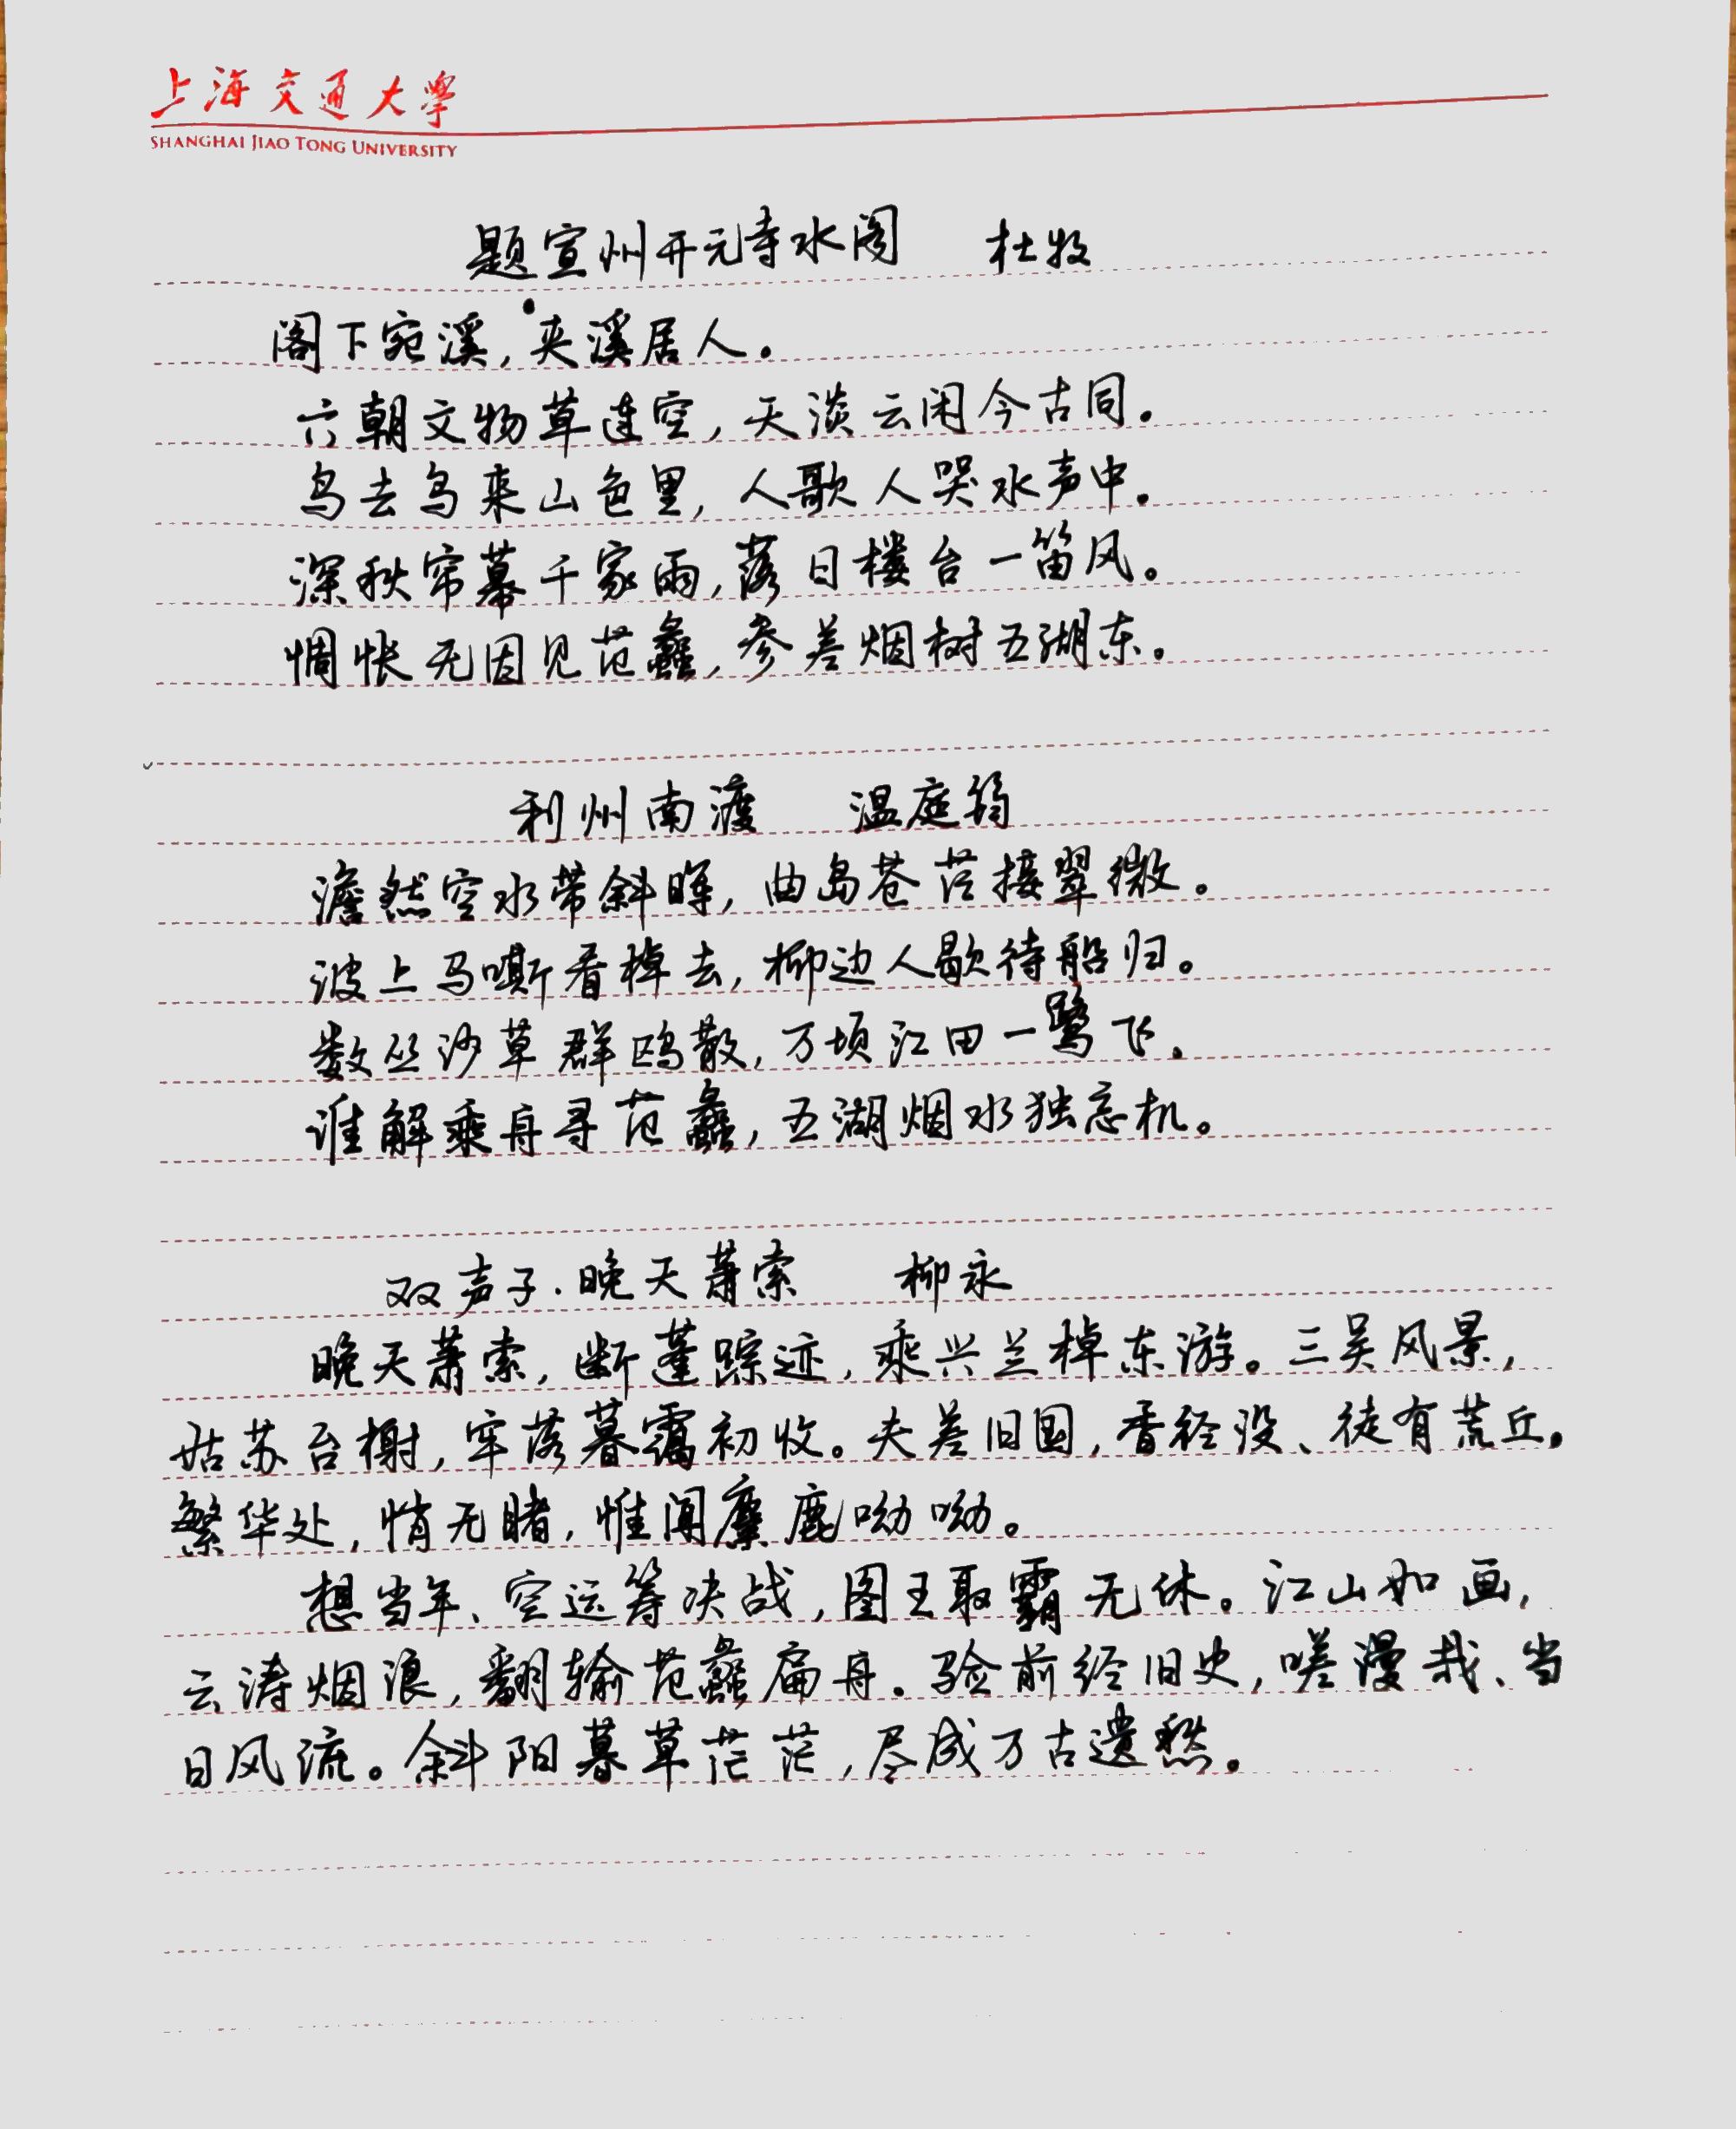 上海交通大學
SHANGHAI JIAO TONG UNIVERSITY
题宣州开元寺水阁 杜牧
阁下宛溪,夹溪居人。
六朝文物草连空,天淡云闲今古同。
鸟去鸟来山色里,人歌人哭水声中。
深秋帘幕千家雨,落日楼台一笛风。
惆怅无因见范蠡,参差烟树五湖东。
利州南渡 温庭筠
澹然空水带斜晖,曲岛苍茫接翠微。
波上马嘶看棹去,柳边人歇待船归。
数丛沙草群鸥散,万顷江田一鹭飞。
谁解乘舟寻范蠡,五湖烟水独忘机。
双声子·晚天萧索 柳永
晚天萧索,断蓬踪迹,乘兴兰棹东游。三吴风景,
姑苏台榭,牢落暮霭初收。夫差旧国,香径没、徒有荒丘。
繁华处,悄无睹,惟闻麋鹿呦呦。
想当年、空运筹决战,图王取霸无休。江山如画,
云涛烟浪,翻输范蠡扁舟。验前经旧史,嗟漫哉、当
日风流。斜阳暮草茫茫,尽成万古遗愁。